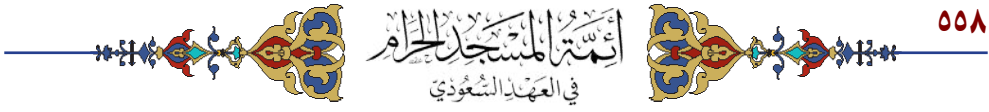 ٥٥٨
أَئِمَّةُ المَسْجِدِ الحَرَامِ
في العَهْدِ السُّعُوْدِيّ